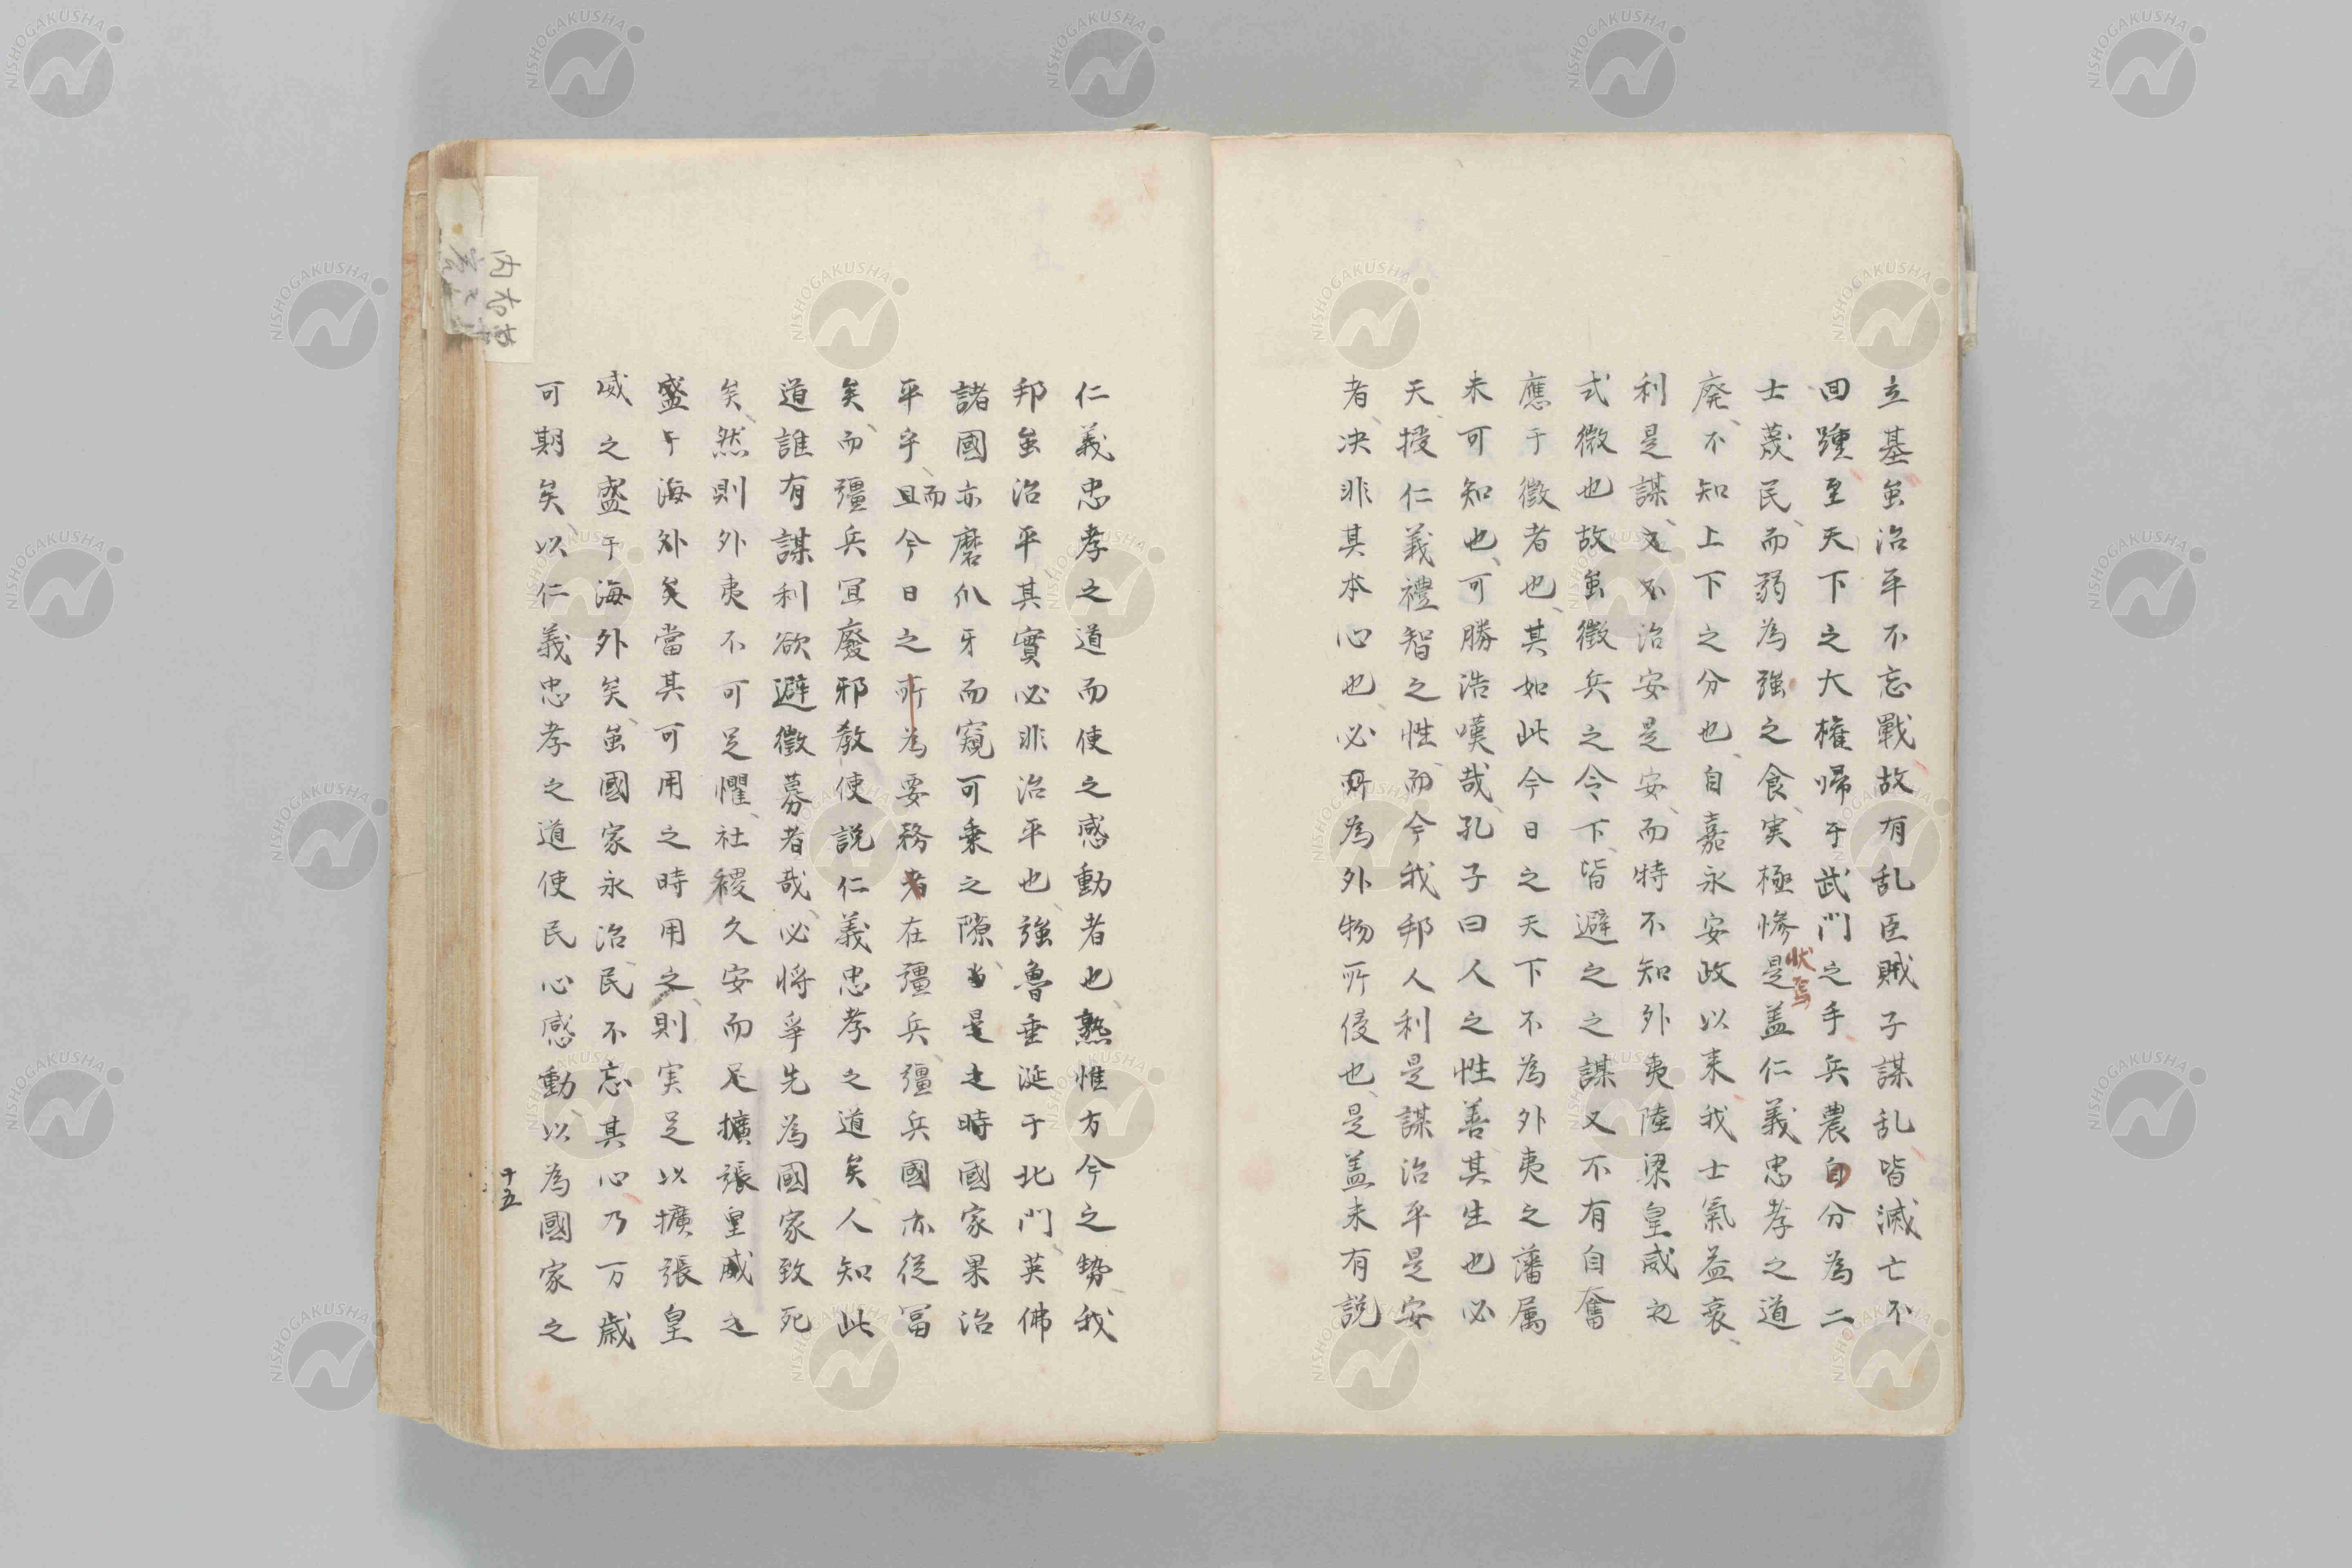 立基虽治平不忘戰故有乱臣賊子謀乱皆滅亡不
回踵至天下之大権帰于武門之手兵農自分為二
士蔑民而弱為強之食実極惨是盖仁義忠孝之道
状焉
廃不知上下之分也自嘉永安政以来我士氣益衰
利是謀又不治安是安而特不知外夷陸梁皇威
式微也故虽徴兵之令下皆避之之謀又不有自奮
應于徴者也其如此今日之天下不為外夷之藩属
未可知也可勝浩嘆哉孔子曰人之性善其生也必
天授仁義禮智之性而今我邦人利是謀治平是安
者决非其本心也必所為外物所侵也是盖未有説
仁義忠孝之道而使之感動者也熟惟方今之勢我
邦虽治平其實必非治平也強魯垂涎于北門英佛
諸國亦磨爪牙而窺可乗之隙當是之時國家果治
平乎且而今日之所為要務者在彊兵彊兵國亦従冨
矣而彊兵宜廢邪教使説仁義忠孝之道矣人知此
道誰有謀利欲避徴募者哉必将爭先為國家致死
矣然則外夷不可足懼社稷久安而足擴張皇威之
盛于海外矣當其可用之時用之則実足以擴張皇
威之盛于海外矣虽國家永治民不忘其心乃万歳
可期矣以仁義忠孝之道使民心感動以為國家之
十五